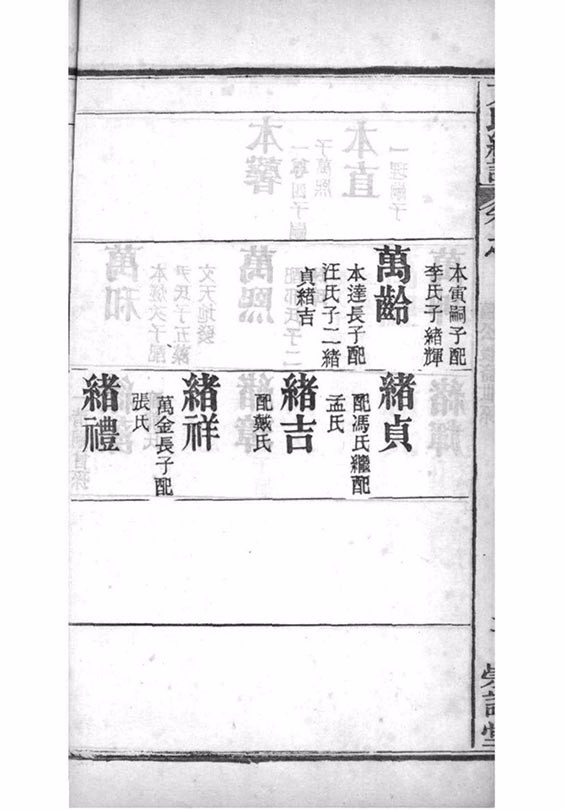 本寅嗣子配
李氏子緒輝
萬齡
本達長子配
汪氏子二緒
貞緒吉
緒貞
配馮氏繼配
孟氏
緒吉
配戴氏
緒祥
萬金長子配
張氏
緒禮